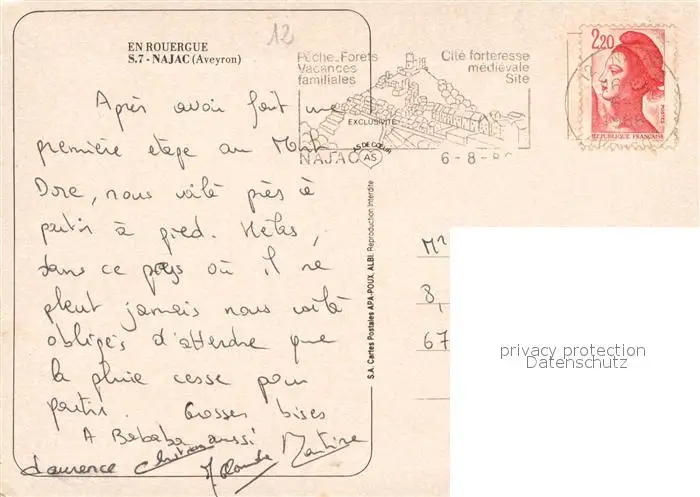 12
EN ROUERGUE
S.7 - NAJAC (Aveyron)
Pêche_Forêts
Vacances
familiales
Cité forteresse
médiévale
Site
NAJAC
6-8-86
2,20
POSTES
REPUBLIQUE FRANÇAISE
EXCLUSIVITÉ
AS DE CŒUR
AS
S.A. Cartes Postales APA-POUX, ALBI. Reproduction Interdite
Après avoir fait une
première étape au Mont
Dore, nous voilà près à
partir à pied. Hélas,
dans ce pays où il ne
pleut jamais nous voilà
obligés d'attendre que
la pluie cesse pour
partir. Grosses bises
A Bababa aussi
Laurence Christian Martine
Mr
8,
67
privacy protection
Datenschutz